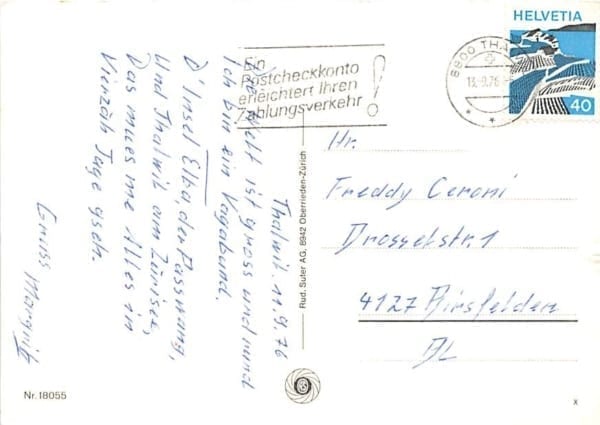 Thalwil 11.9.76
Die Welt ist gross und rund
Ich bin ein Vagabund.
D'Insel Elba, der Passwang,
Und Thalwil am Zürisee,
Das mues me Alles in
Vierzäh Tage gseh.
Gruss Margrit
Ein
Postcheckkonto
erleichtert Ihren
Zahlungsverkehr !
8800 THALWIL
13.-9.76
HELVETIA
40
Hr.
Freddy Ceroni
Drosselstr. 1
4127 Birsfelden
BL
Rud. Suter AG. 8942 Oberrieden-Zürich
Nr. 18055
x